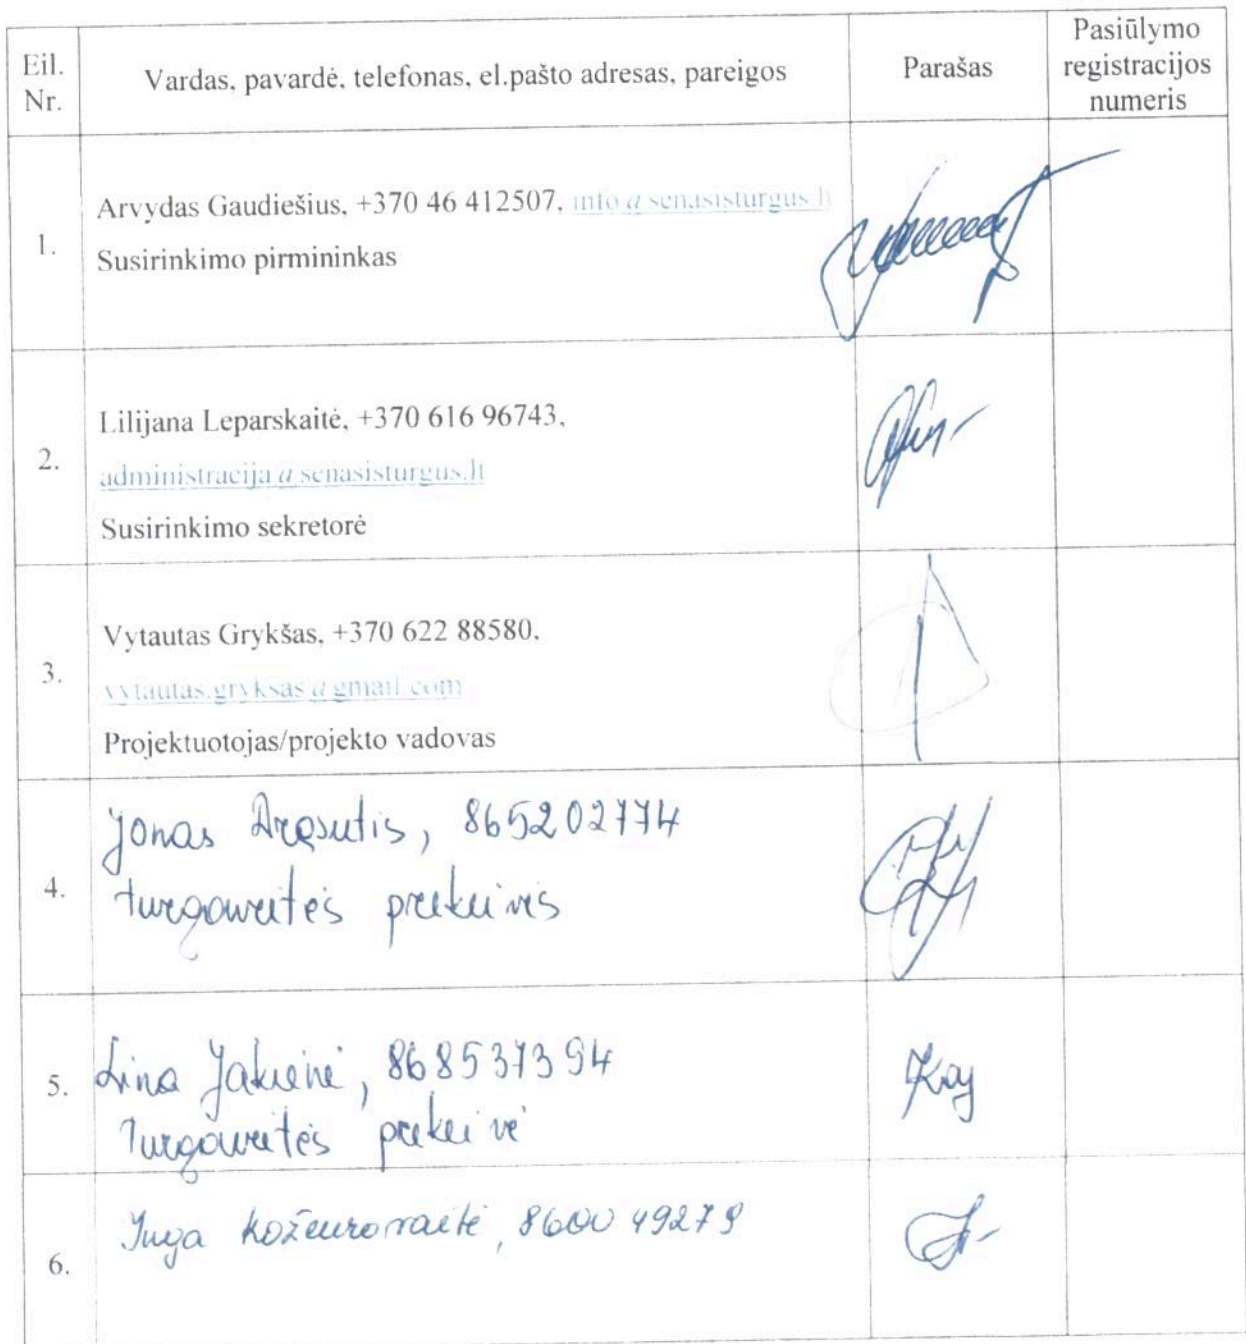 Eil. Nr.
Vardas, pavardė, telefonas, el.pašto adresas, pareigos
Parašas
Pasiūlymo registracijos numeris
1.
Arvydas Gaudiešius, +370 46 412507, info@senasisturgus.lt
Susirinkimo pirmininkas
2.
Lilijana Leparskaitė, +370 616 96743,
administracija@senasisturgus.lt
Susirinkimo sekretorė
3.
Vytautas Grykšas, +370 622 88580,
vytautas.gryksas@gmail.com
Projektuotojas/projekto vadovas
4.
Jonas 865202774
turgavietės prekeivis
5.
Lina Jakienė, 868537394
Turgavietės prekeivė
6.
Inga 860049279